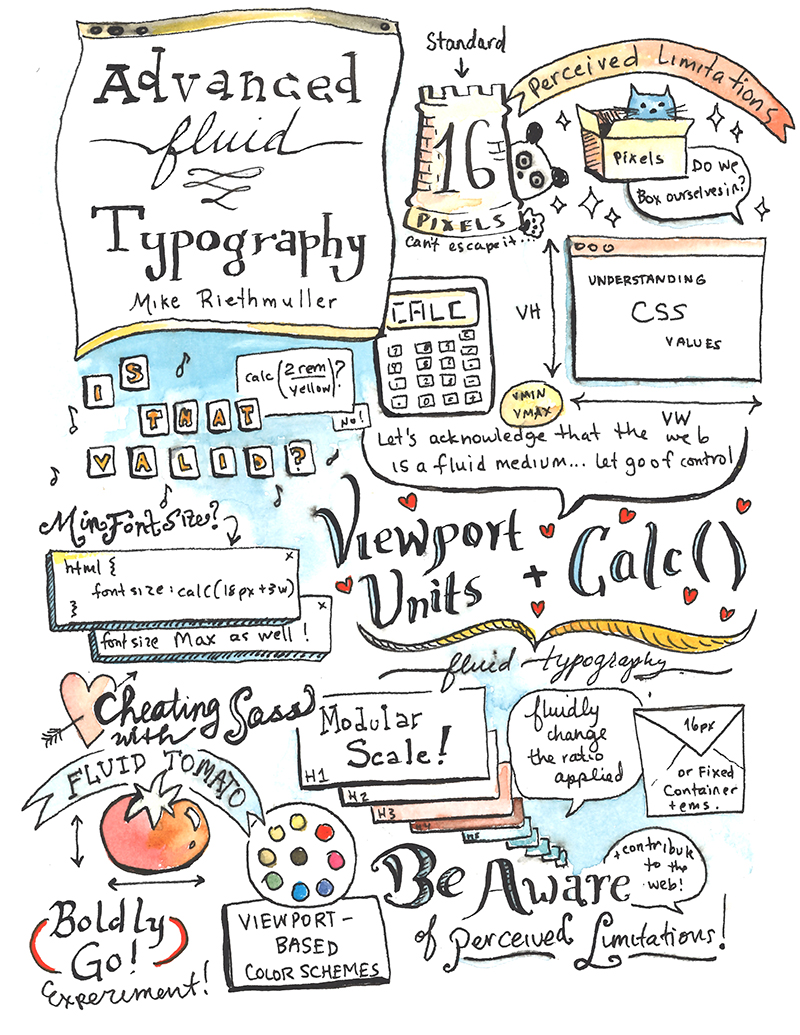 Advanced
fluid
Typography
Mike Riethmuller
Standard
16
PIXELS
can't escape it...
Perceived Limitations
Pixels
Do we
Box ourselves in?
CALC
VH
UNDERSTANDING
CSS
VALUES
VMIN
VMAX
VW
IS
THAT
VALID?
calc(2 rem
yellow)?
No!
Let's acknowledge that the web
is a fluid medium... let go of control
Viewport
Units + Calc()
fluid typography
Min Font Size?
html {
font size: calc(18px+3w)
}
font size Max as well!
Cheating
with Sass
FLUID TOMATO
Modular
Scale!
H1
H2
H3
H4
H5
fluidly
change
the ratio
applied
16px
or Fixed
Container
tems.
Be Aware
of Perceived Limitations!
+contribute
to the
web!
Boldly
Go!
Experiment!
VIEWPORT-
BASED
COLOR SCHEMES